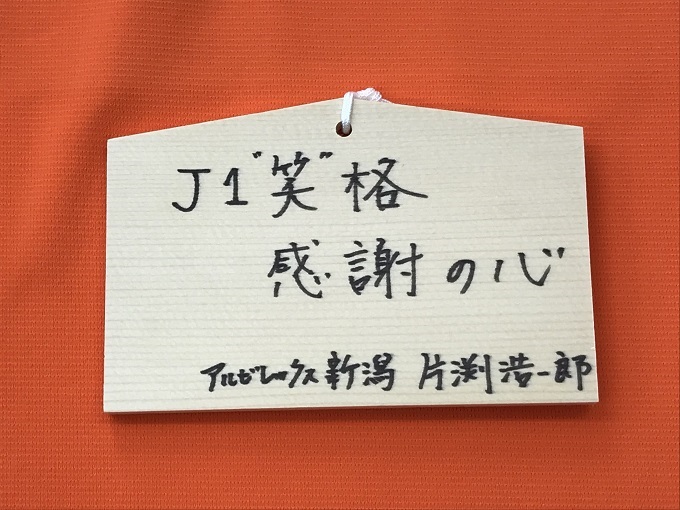 J1"笑"格
感謝の心
アルビレックス新潟 片渕浩一郎